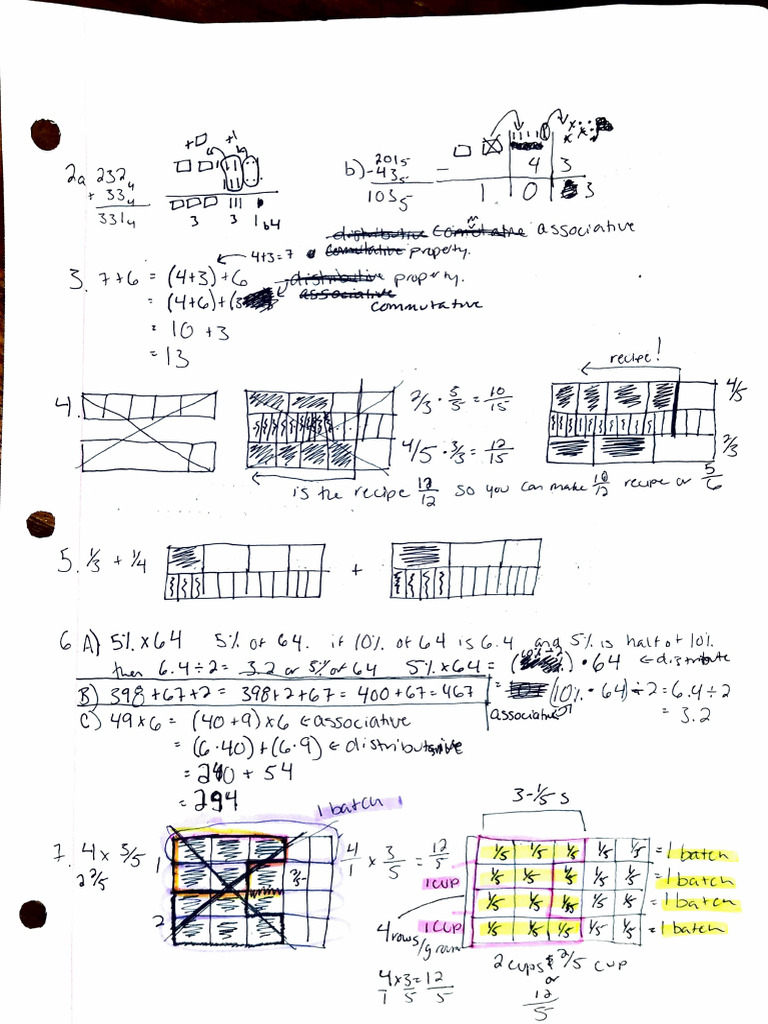 2a 232₄
+ 33₄
331₄
+□ +1
3 3 1 b4
b) 201₅
-43₅
103₅
4 3
1 0 3
distributive associative
← 4+3=7 commutative property.
3. 7+6 = (4+3)+6 distributive property.
= (4+6)+(3 associative
commutative
= 10 +3
= 13
recipe!
4. 2/3 · 5/5 = 10/15
4/5
4/5 · 3/3 = 12/15
2/3
is the recipe 12/12 so you can make 10/12 recipe or 5/6
5. 1/3 + 1/4 +
6 A) 5% x 64 5% of 64. if 10% of 64 is 6.4 and 5% is half of 10%
then 6.4 ÷ 2 = 3.2 or 5% of 64 5% x 64 = (10% ÷ 2) · 64 ← distribute
B) 398 + 67 + 2 = 398 + 2 + 67 = 400 + 67 = 467
= (10% · 64) ÷ 2 = 6.4 ÷ 2
associative
= 3.2
C) 49 x 6 = (40 + 9) x 6 ← associative
= (6·40) + (6·9) ← distributive
= 240 + 54
= 294
1 batch
3 - 1/5 s
7. 4 x 3/5
2 2/5
1
2
2/5
4/1 x 3/5 = 12/5
1/5 1/5 1/5 1/5 1/5 = 1 batch
1 cup
1/5 1/5 1/5 1/5 1/5 = 1 batch
1/5 1/5 1/5 1/5 1/5 = 1 batch
1 cup
1/5 1/5 1/5 1/5 1/5 = 1 batch
4 rows
2 cups & 2/5 cup
or
12/5
4/1 x 3/5 = 12/5